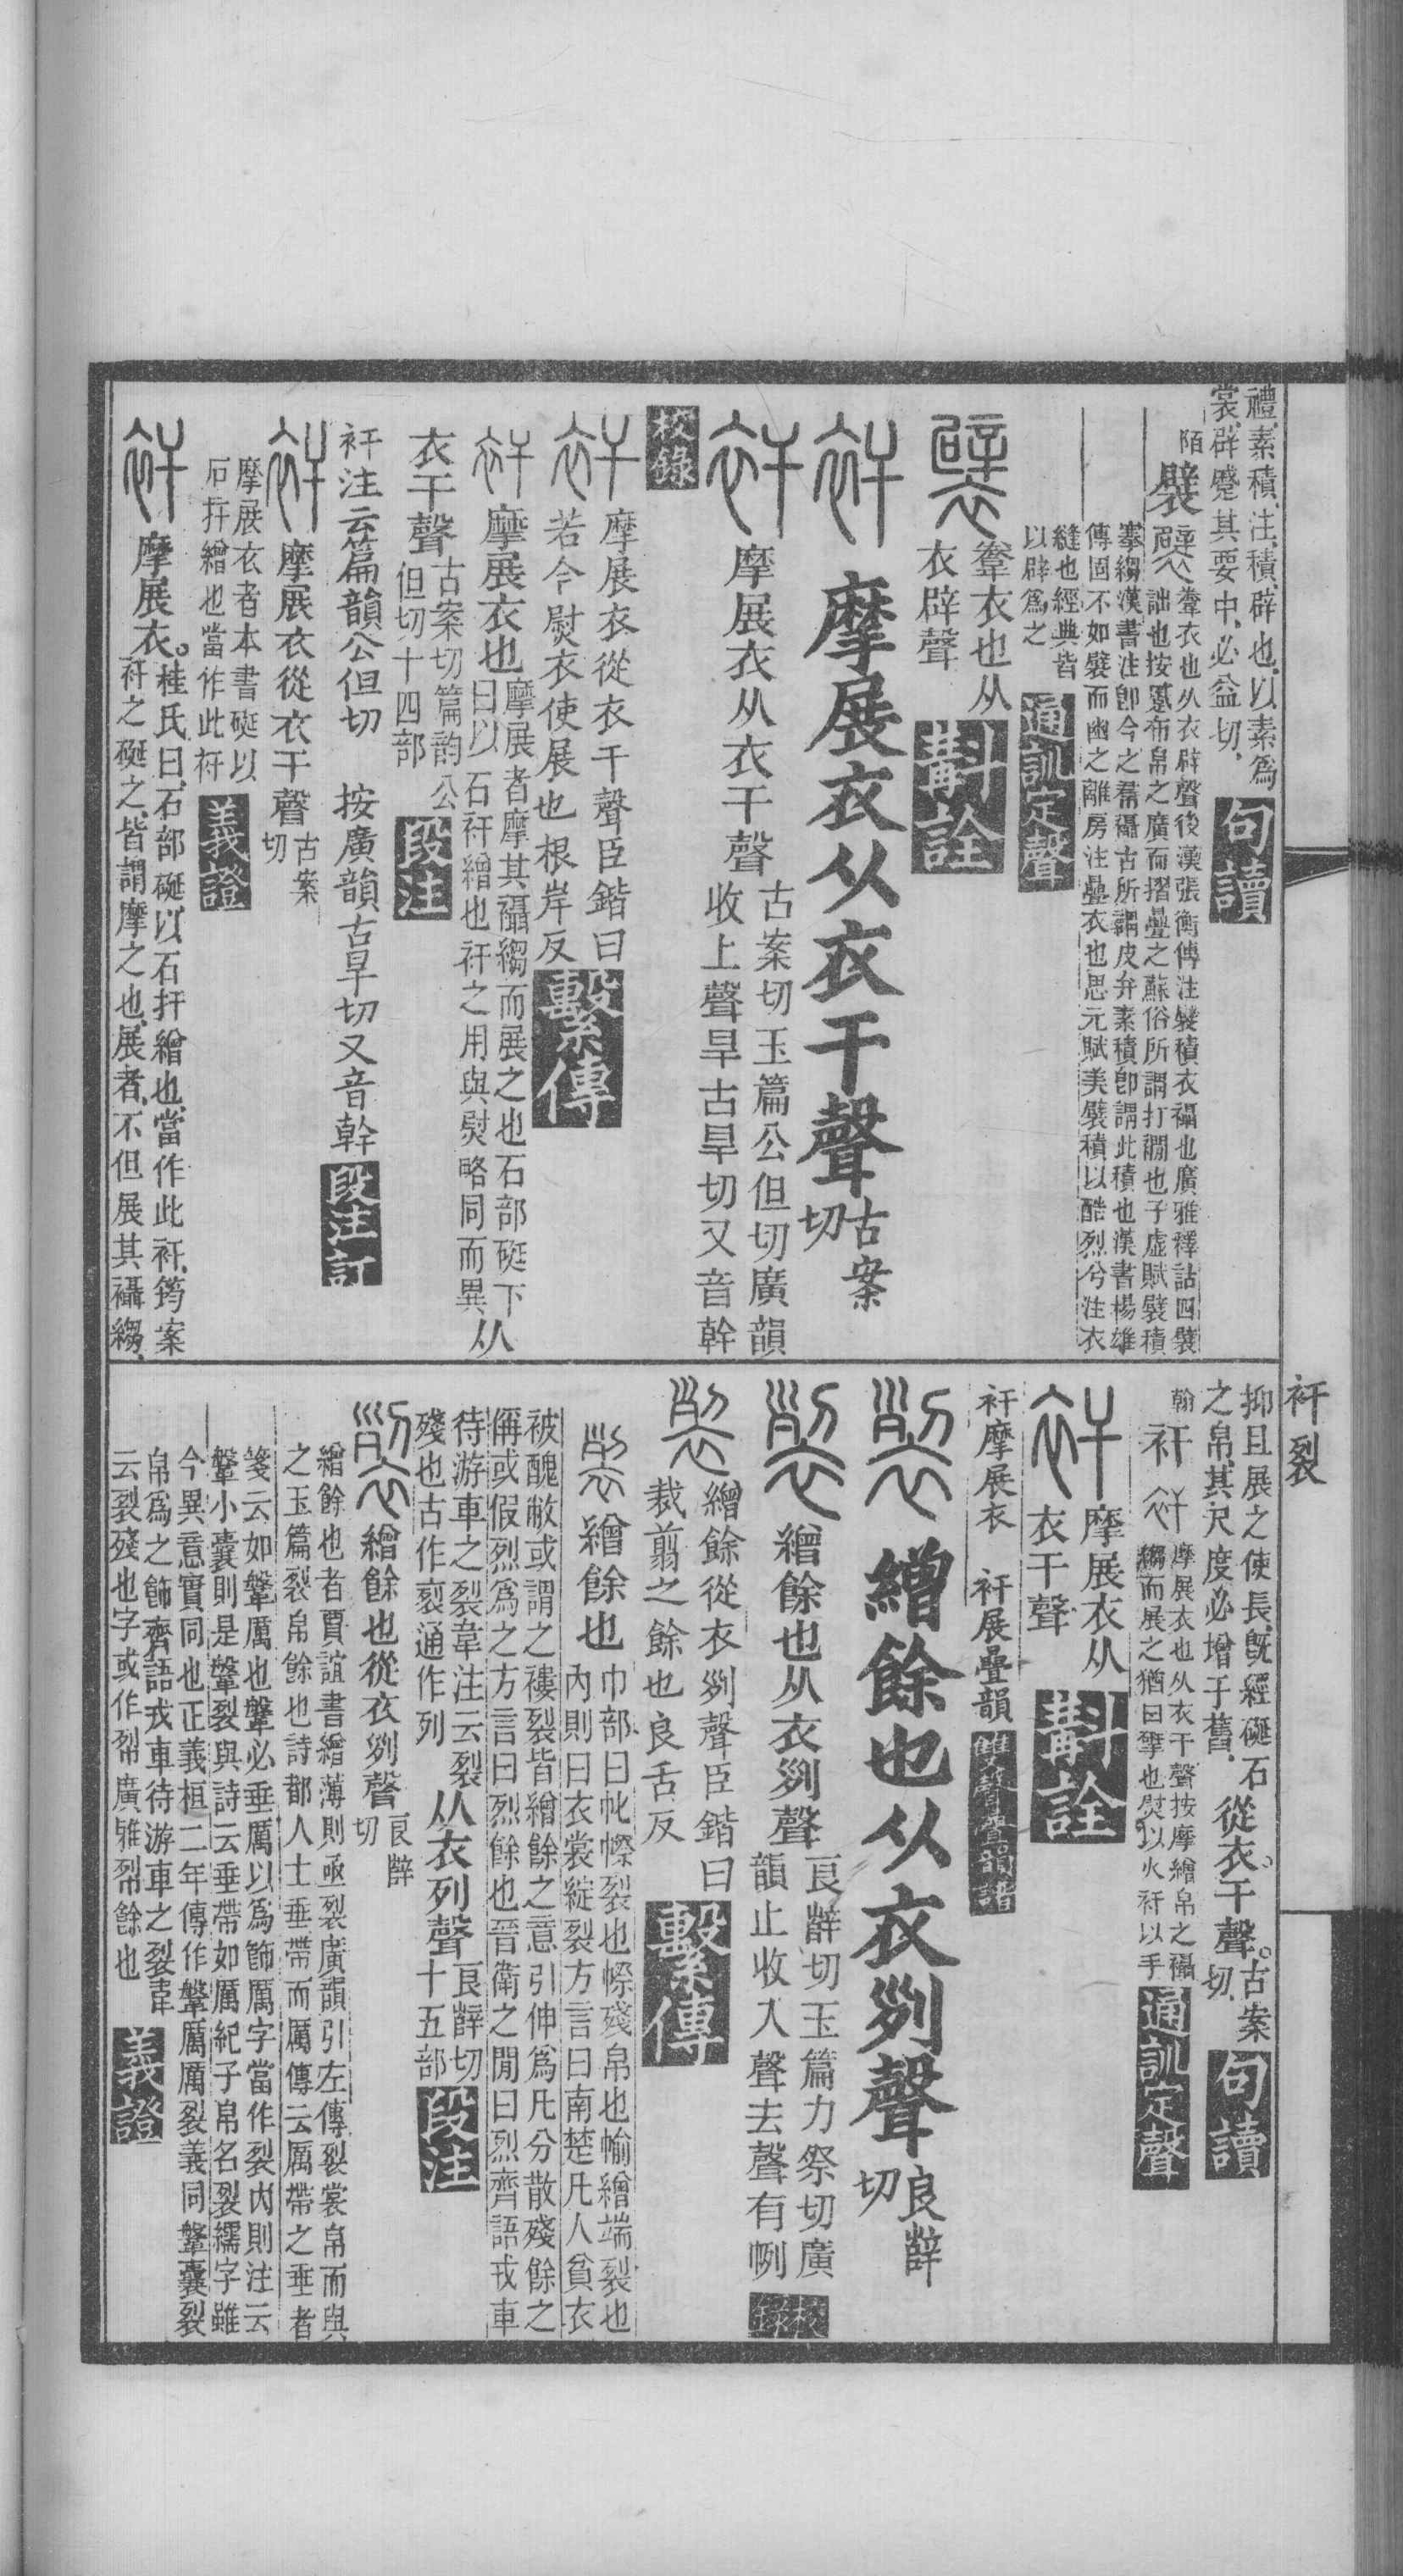 禮、素積、注、積、辟也、以素爲
裳、辟蹙其要中、必益切、
句讀
陌
襞
韏衣也从衣辟聲後漢張衡傳注襞積衣襵也廣雅釋詁四襞
詘也按蹙布帛之廣而摺疊之蘇俗所謂打襉也子虛賦襞積
搴縐漢書注卽今之帬襵古所謂皮弁素積卽謂此積也漢書楊雄
傳固不如襞而幽之離房注疊衣也思元賦美襞積以酷烈兮注衣
縫也經典皆
以辟爲之
通訓定聲
韏衣也从
衣辟聲
斠詮
摩展衣从衣干聲
古案
切
摩展衣从衣干聲
古案切玉篇公但切廣韻
收上聲旱古旱切又音幹
校錄
摩展衣從衣干聲臣鍇曰
若今熨衣使展也根岸反
繫傳
摩展衣也
摩展者摩其襵縐而展之也石部硟下
曰以石衦繒也衦之用與熨略同而異
从
衣干聲
古案切篇韵公
但切十四部
段注
衦注云篇韻公但切　按廣韻古旱切又音幹
段注訂
摩展衣從衣干聲
古案
切
摩展衣者本書硟以
石扞繒也當作此衦
義證
摩展衣。
桂氏曰、石部硟、以石扞繒也、當作此衦、筠案
衦之硟之、皆謂摩之也、展者、不但展其襵縐、
衦裂
抑且展之使長、旣經硟石
之帛、其尺度必增于舊、
從衣。干聲。
古案
切、
句讀
翰
衦
摩展衣也从衣干聲按摩繒帛之襵
縐而展之猶曰擎也熨以火衦以手
通訓定聲
摩展衣从
衣干聲
斠詮
衦摩展衣　衦展疊韻
雙聲疊韻譜
繒餘也从衣𠛱聲
良辥
切
繒餘也从衣𠛱聲
良辥切玉篇力祭切廣
韻止收入聲去聲有㤡
校錄
繒餘從衣𠛱聲臣鍇曰
裁剪之餘也良舌反
繫傳
繒餘也
巾部曰㡜幜裂也幜殘帛也㡏繒端裂也
內則曰衣裳綻裂方言曰南楚凡人貧衣
被醜敝或謂之褸裂皆繒餘之意引伸爲凡分散殘餘之
偁或假烈爲之方言曰烈餘也晉衛之閒曰烈齊語戎車
待游車之裂韋注云裂
殘也古作裂通作列
从衣列聲
良辥切
十五部
段注
繒餘也從衣𠛱聲
良辥
切
繒餘也者賈誼書繒薄則亟裂廣韻引左傳裂裳帛而與
之玉篇裂帛餘也詩都人士垂帶而厲傳云厲帶之垂者
箋云如鞶厲也鞶必垂厲以爲飾厲字當作裂內則注云
鞶小囊則是鞶裂與詩云垂帶如厲紀子帛名裂繻字雖
今異意實同也正義桓二年傳作鞶厲厲裂義同鞶囊裂
帛爲之飾齊語戎車待游車之裂韋
云裂殘也字或作𢂾廣雅𢂾餘也
義證